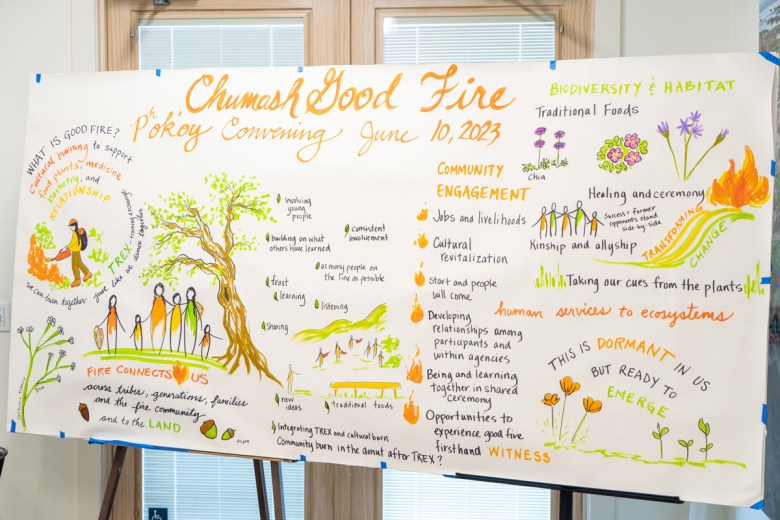 Chumash Good Fire
P'ok'oy Convening June 10, 2023
WHAT IS GOOD FIRE?
Cultural burning to support
food plants, medicine
basketry, and
RELATIONSHIP
TREX - training exchange
We can burn together just like we dance together
FIRE CONNECTS US
across tribes, generations, families
and the fire community
and to the LAND
acorn
Involving
young
people
building on what
others have learned
consistent
involvement
feast
as many people on
the line as possible
learning
listening
sharing
new
ideas
traditional foods
Integrating TREX and cultural burn
Community burn in the donut after TREX?
COMMUNITY
ENGAGEMENT
Jobs and livelihoods
Cultural
revitalization
Start and people
will come
Developing
relationships among
participants and
within agencies
Being and learning
together in shared
ceremony
Opportunities to
experience good fire
firsthand WITNESS
BIODIVERSITY & HABITAT
Traditional Foods
Chia
Healing and ceremony
Success = former
opponents stand
side-by-side
Kinship and allyship
TRANSFORMING
CHANGE
Taking our cues from the plants
human services to ecosystems
THIS IS DORMANT IN US
BUT READY TO
EMERGE